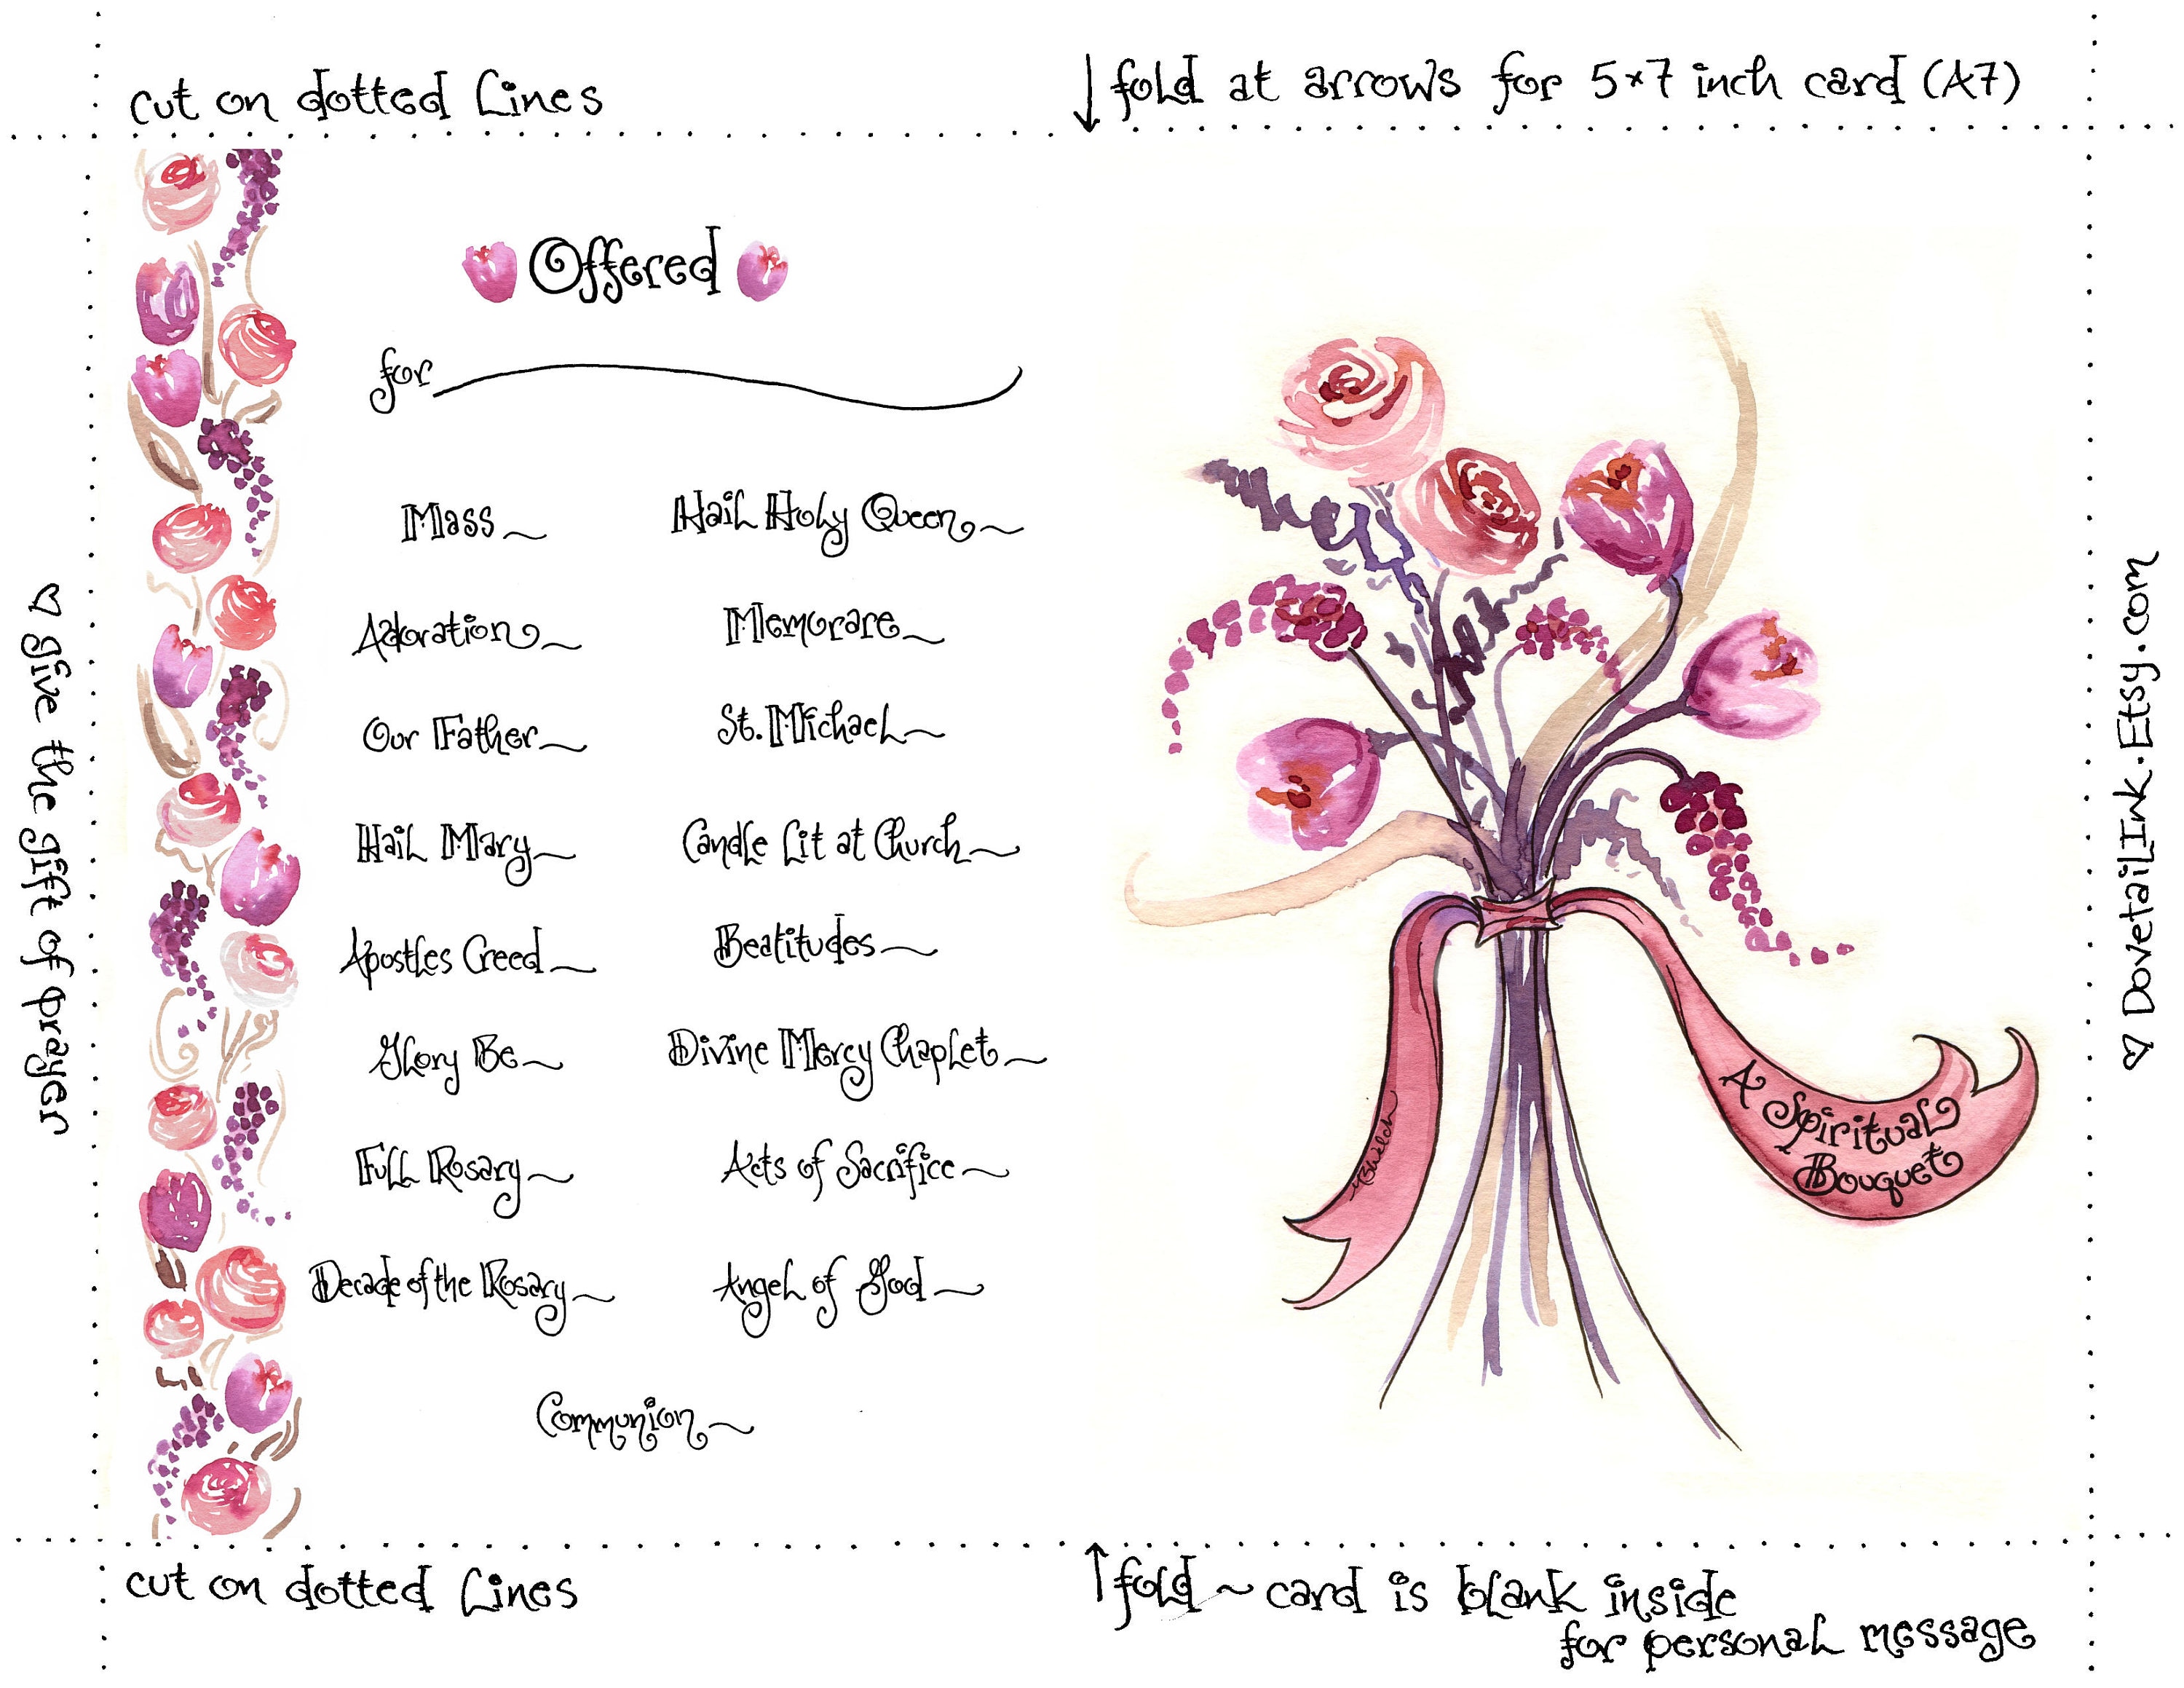 cut on dotted lines
fold at arrows for 5x7 inch card (A7)
Offered
for
Mass
Adoration
Our Father
Hail Mary
Apostles Creed
Glory Be
Full Rosary
Decade of the Rosary
Hail Holy Queen
Memorare
St. Michael
Candle Lit at Church
Beatitudes
Divine Mercy Chaplet
Acts of Sacrifice
Angel of God
Communion
A Spiritual
Bouquet
MBWelch
give the gift of prayer
DovetailInk.Etsy.com
cut on dotted lines
fold ~ card is blank inside
for personal message